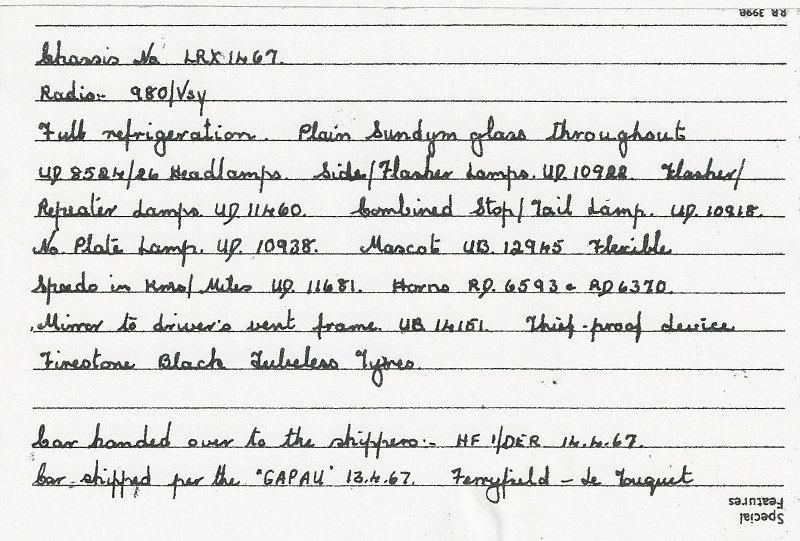 RR 3998
Chassis No LRX1467.
Radio:- 980/Vsy
Full refrigeration. Plain Sundym glass throughout
UD 8524/26 Headlamps. Side/Flasher Lamps. UD. 10922. Flasher/
Repeater Lamps. UD. 11460. Combined Stop/Tail Lamp. UD. 10918.
No. Plate Lamp. UD. 10938. Mascot UB. 12945 Flexible
Speedo in Kms/Miles UD. 11681. Horns RD. 6593 & RD6370.
Mirror to driver's vent frame. UB 14151. Thief-proof device
Firestone Black Tubeless Tyres.
Car handed over to the shippers:- HF 14.4.67.
Car shipped per the "GAPAU" 13.4.67. Ferryfield - Le Touquet
Special
Features